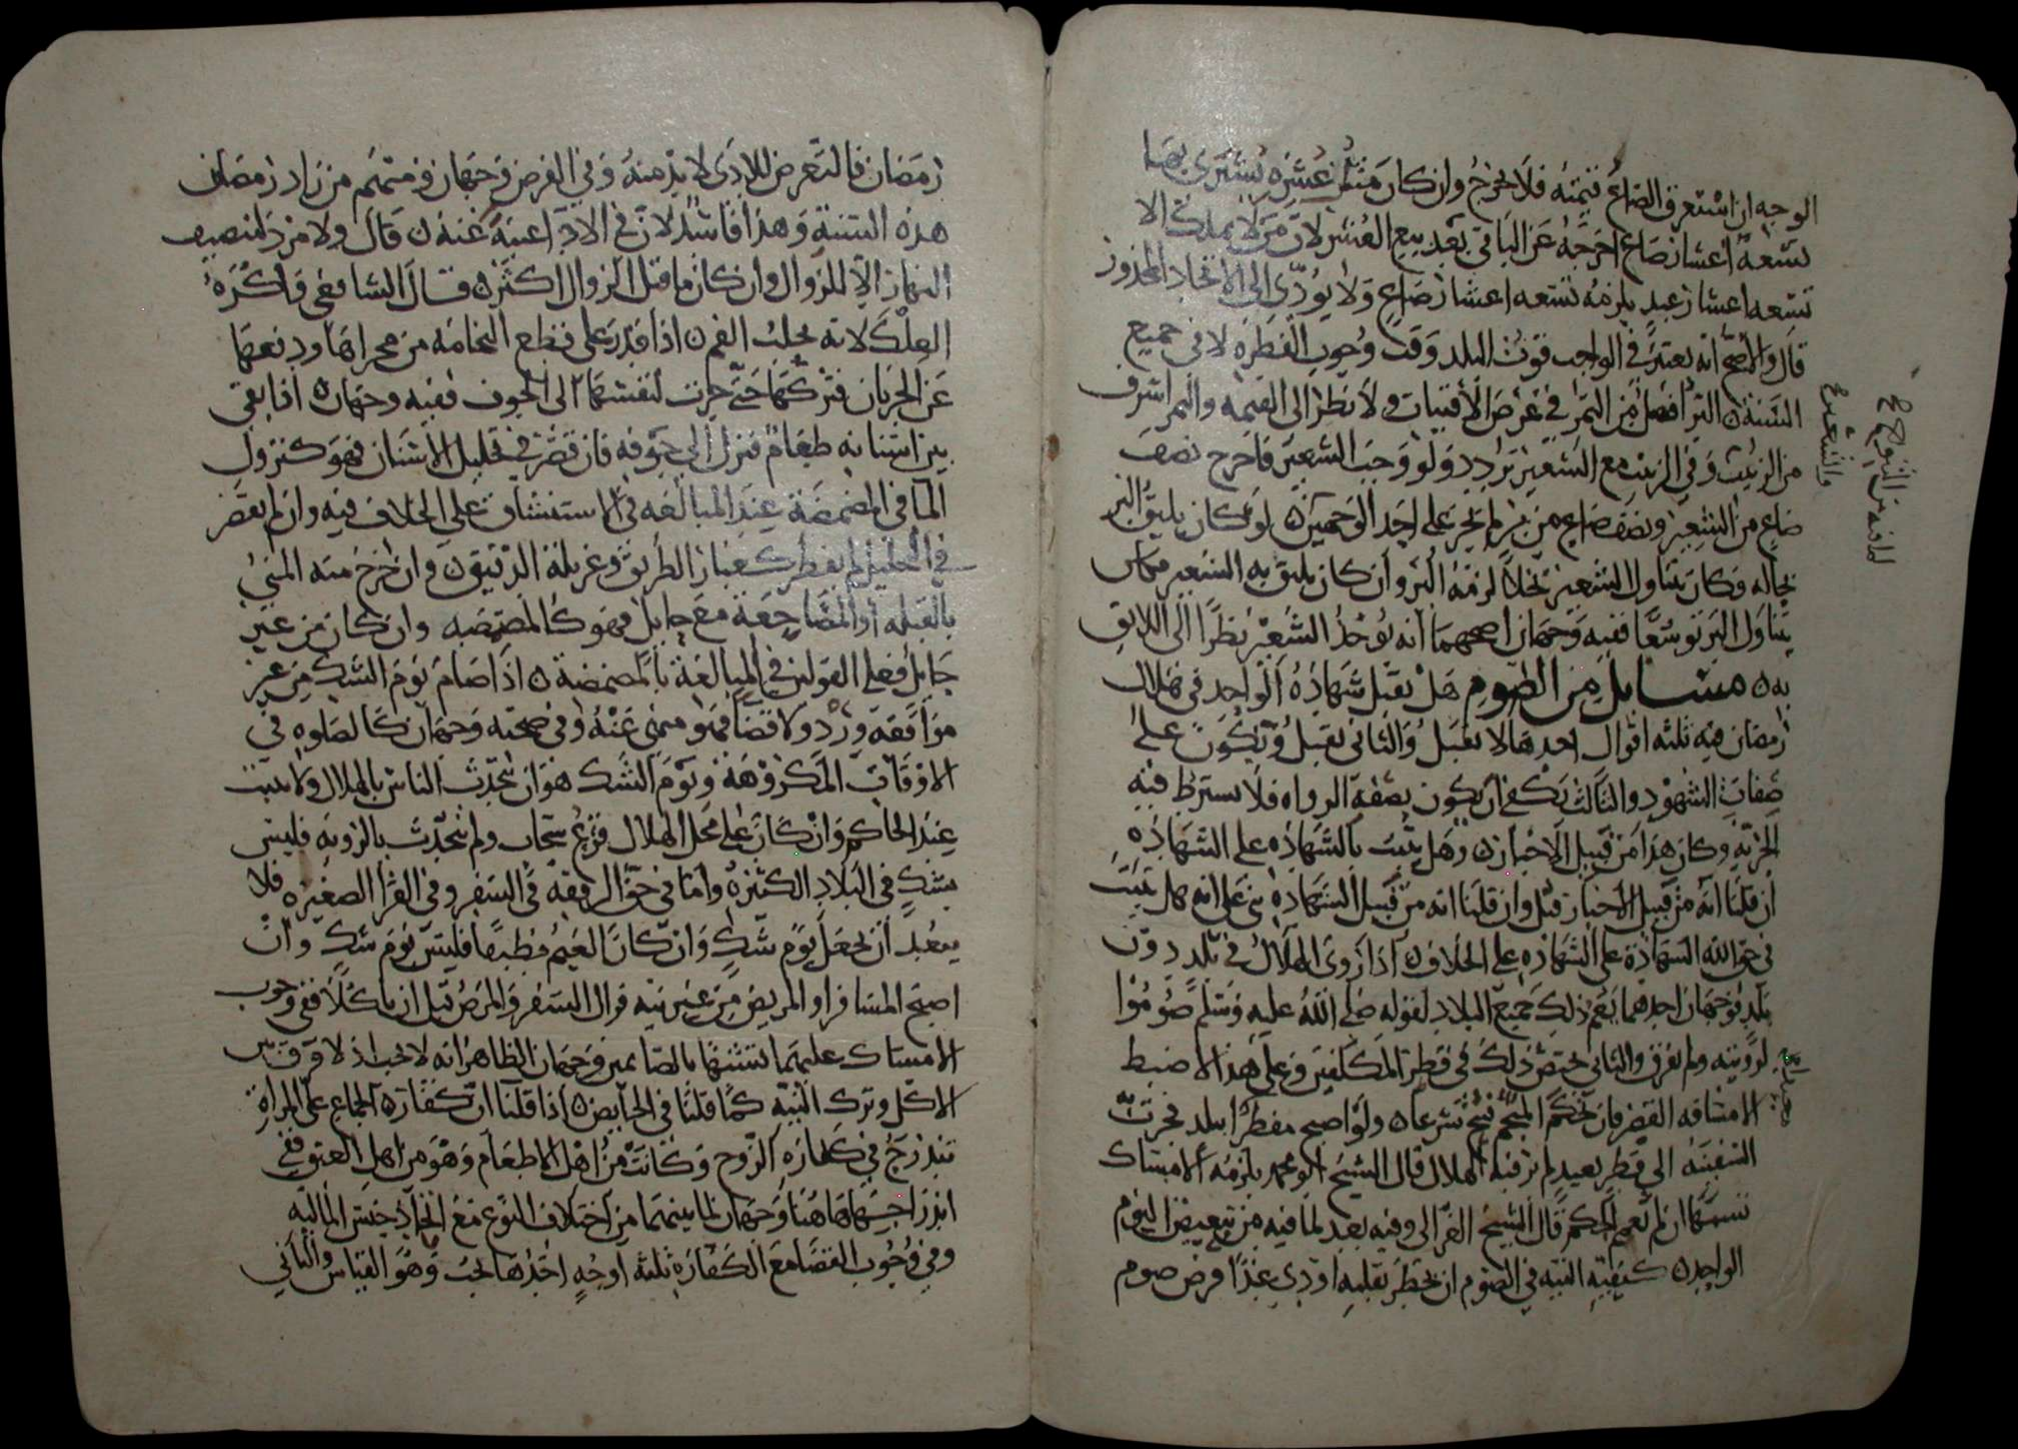 الوجه ان استغرق الصاع قيمته فلا يخرج وان كان مثل عشره يشترى بها
تسعة اعشار صاع اخرجه عن الباقي بعد بيع العشر لان من لا يملك الا
تسعه اعشار عبد يلزمه تسعه اعشار صاع ولا يودي الى الاتحاد المحذور
قال والاصح انه يعتبر في الواجب قوت البلد وقت وجوب الفطره لا في جميع
السنة ن البر افضل من التمر في غرض الاقتيات ولا نظر الى القيمه والتمر اشرف
من الزبيب وفي الزبيب مع الشعير تردد ولو وجب الشعير فاخرج نصف
صاع من الشعير ونصف صاع من بر لم يجز على احد الوجهين ن لو كان يليق البر
بحاله وكان يتناول الشعير بخلا لزمه البر وان كان يليق به الشعير
يتناول البر توسعا ففيه وجهان اصحهما انه يوخذ الشعير نظرا الى اللايق
به ن مسايل من الصوم هل تقبل شهادة الواحد في هلال
رمضان فيه ثلثه اقوال احدها لا تقبل والثاني تقبل ويكون على
صفات الشهود والثالث يكفي ان يكون بصفة الرواه فلا يشترط فيه
الحريه وكان هذا من قبيل الاخبار ن وهل يثبت بالشهاده على الشهاده
ان قلنا انه من قبيل الاخبار قبل وان قلنا انه من قبيل الشهاده بني على انه هل تثبت
في حق الله الشهادة على الشهاده على الخلاف ن اذا روى الهلال في بلد دون
بلد فوجهان احدهما يعم ذلك جميع البلاد لقوله صلى الله عليه وسلم صوموا
لرويته ولم يفرق والثاني يختص ذلك في قطر المكلفين وعلى هذا لا ضبط
الا مسافه القصر فان تحكم المنجم قبيح شرعا ن ولو اصبح مفطرا ببلد فجرت
السفينة الى قطر بعيد لم ير فيه الهلال قال الشيخ ابو محمد يلزمه الامساك
تشبها ان لم نعمم الحكم قال الشيخ الغزالي وفيه بعد لما فيه من تبعيض اليوم
الواحد ن كيفيه النيه في الصوم ان يخطر بقلبه اودي غدا فرض صوم
رمضان فالتعرض للادى لا بد منه وفي الفرض وجهان ومنهم من زاد رمضان
هذه السنة وهذا فاسد لان في الادا غنية عنه ن قال ولا مزد لنصيف
النهار الا للزوال وان كان ما قبل الزوال اكثر ن قال الشافعي واكره
العلك لانه يحلب الفم ن اذا قدر على قطع النخامه من مجراها ودفعها
عن الجريان فتركها حتى جرت بنفسها الى الجوف ففيه وجهان ن اذا بقي
بين اسنانه طعام فنزل الى جوفه فان قصر في تخليل الاسنان فهو كنزول
الما في المضمضة عند المبالغه في الاستنشاق على الخلاف فيه وان لم يقصر
في التخليل لم يفطر كغبار الطريق وغربلة الدقيق ن وان خرج منه المني
بالقبله او المضاجعة مع حايل فهو كالمضمضه وان كان من غير
حايل فعلى القولين في المبالغة بالمضمضة ن اذا صام يوم الشك من غير
موافقة ورد ولا قضا فهو منهي عنه وفي صحته وجهان كالصلوه في
الاوقات المكروهة ويوم الشك هو ان يتحدث الناس بالهلال ولا يثبت
عند الحاكم وان كان على محل الهلال قزع سحاب ولم يتحدث بالرويه فليس
بشك في البلاد الكثيره واما في حق الرفقه في السفر وفي القرا الصغيره فلا
يبعد ان يجعل يوم شك وان كان الغيم مطبقا فليس يوم شك وان
اصبح المسافر او المريض من غير نيه فزال السفر والمرض قبل ان ياكلا ففي وجوب
الامساك عليهما تشبها بالصايمين وجهان الظاهر انه لا يجب اذ لا فرق بين
الاكل وترك النية كما قلنا في الحايض ن اذا قلنا ان كفارة الجماع على المراة
تندرج في كفارة الزوج وكانت من اهل الاطعام وهو من اهل العتق ففي
اندراجها هاهنا وجهان لما بينهما من اختلاف النوع مع اتحاد جنس الماليه
وفي وجوب القضا مع الكفاره ثلثه اوجه احدها يجب وهو القياس والثاني